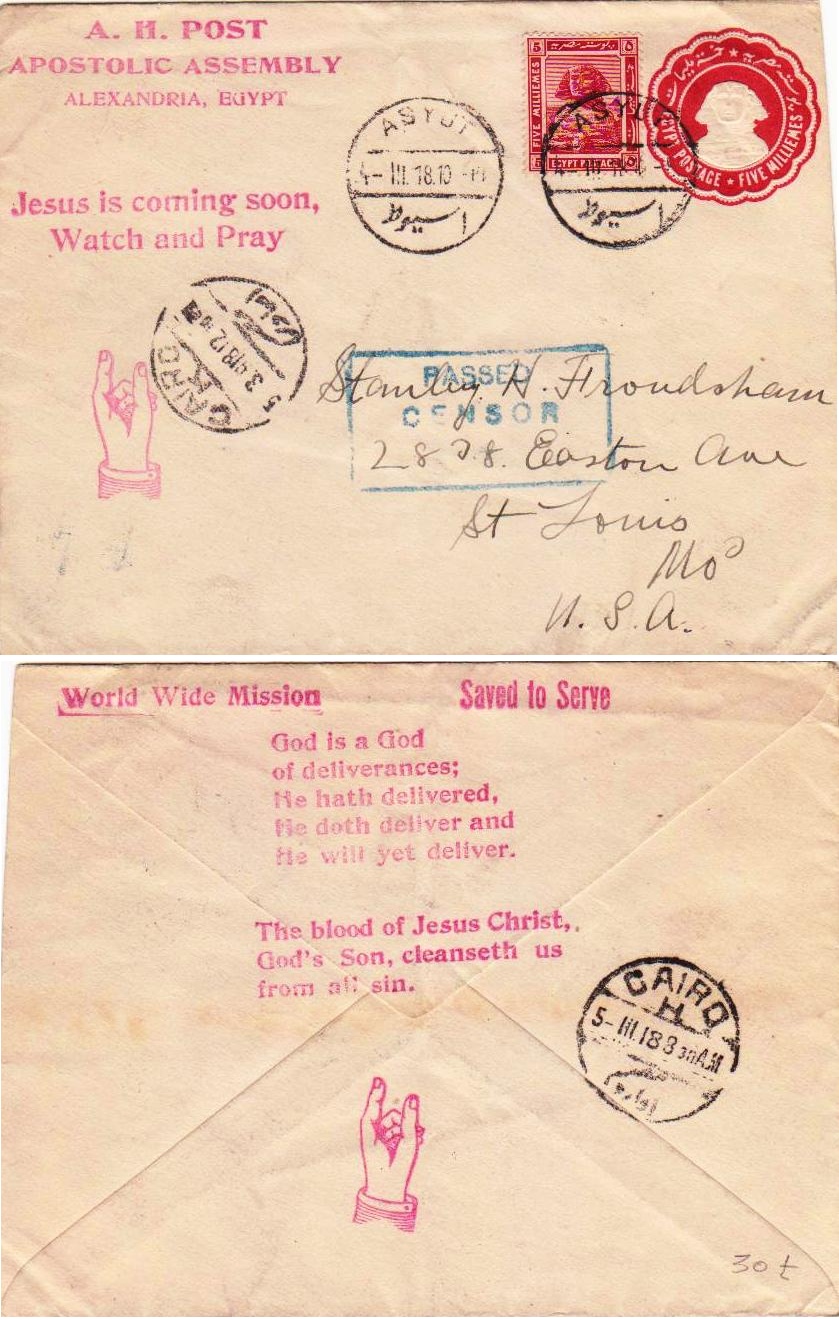 A. H. POST
APOSTOLIC ASSEMBLY
ALEXANDRIA, EGYPT
Jesus is coming soon,
Watch and Pray
ASYUT
4-III.18.10
اسيوط
5 ٥
FIVE MILLIEMES
EGYPT POSTAGE
5 ٥
ASYUT
اسيوط
EGYPT POSTAGE ★ FIVE MILLIEMES
CAIRO
K
5 3 18 12
PASSED
CENSOR
Stanley H. Frodsham
2838. Easton Ave
St Louis
Mo
U. S. A.
World Wide Mission
Saved to Serve
God is a God
of deliverances;
He hath delivered,
He doth deliver and
He will yet deliver.
The blood of Jesus Christ,
God's Son, cleanseth us
from all sin.
CAIRO
H
5-III.18 8 30 AM
30